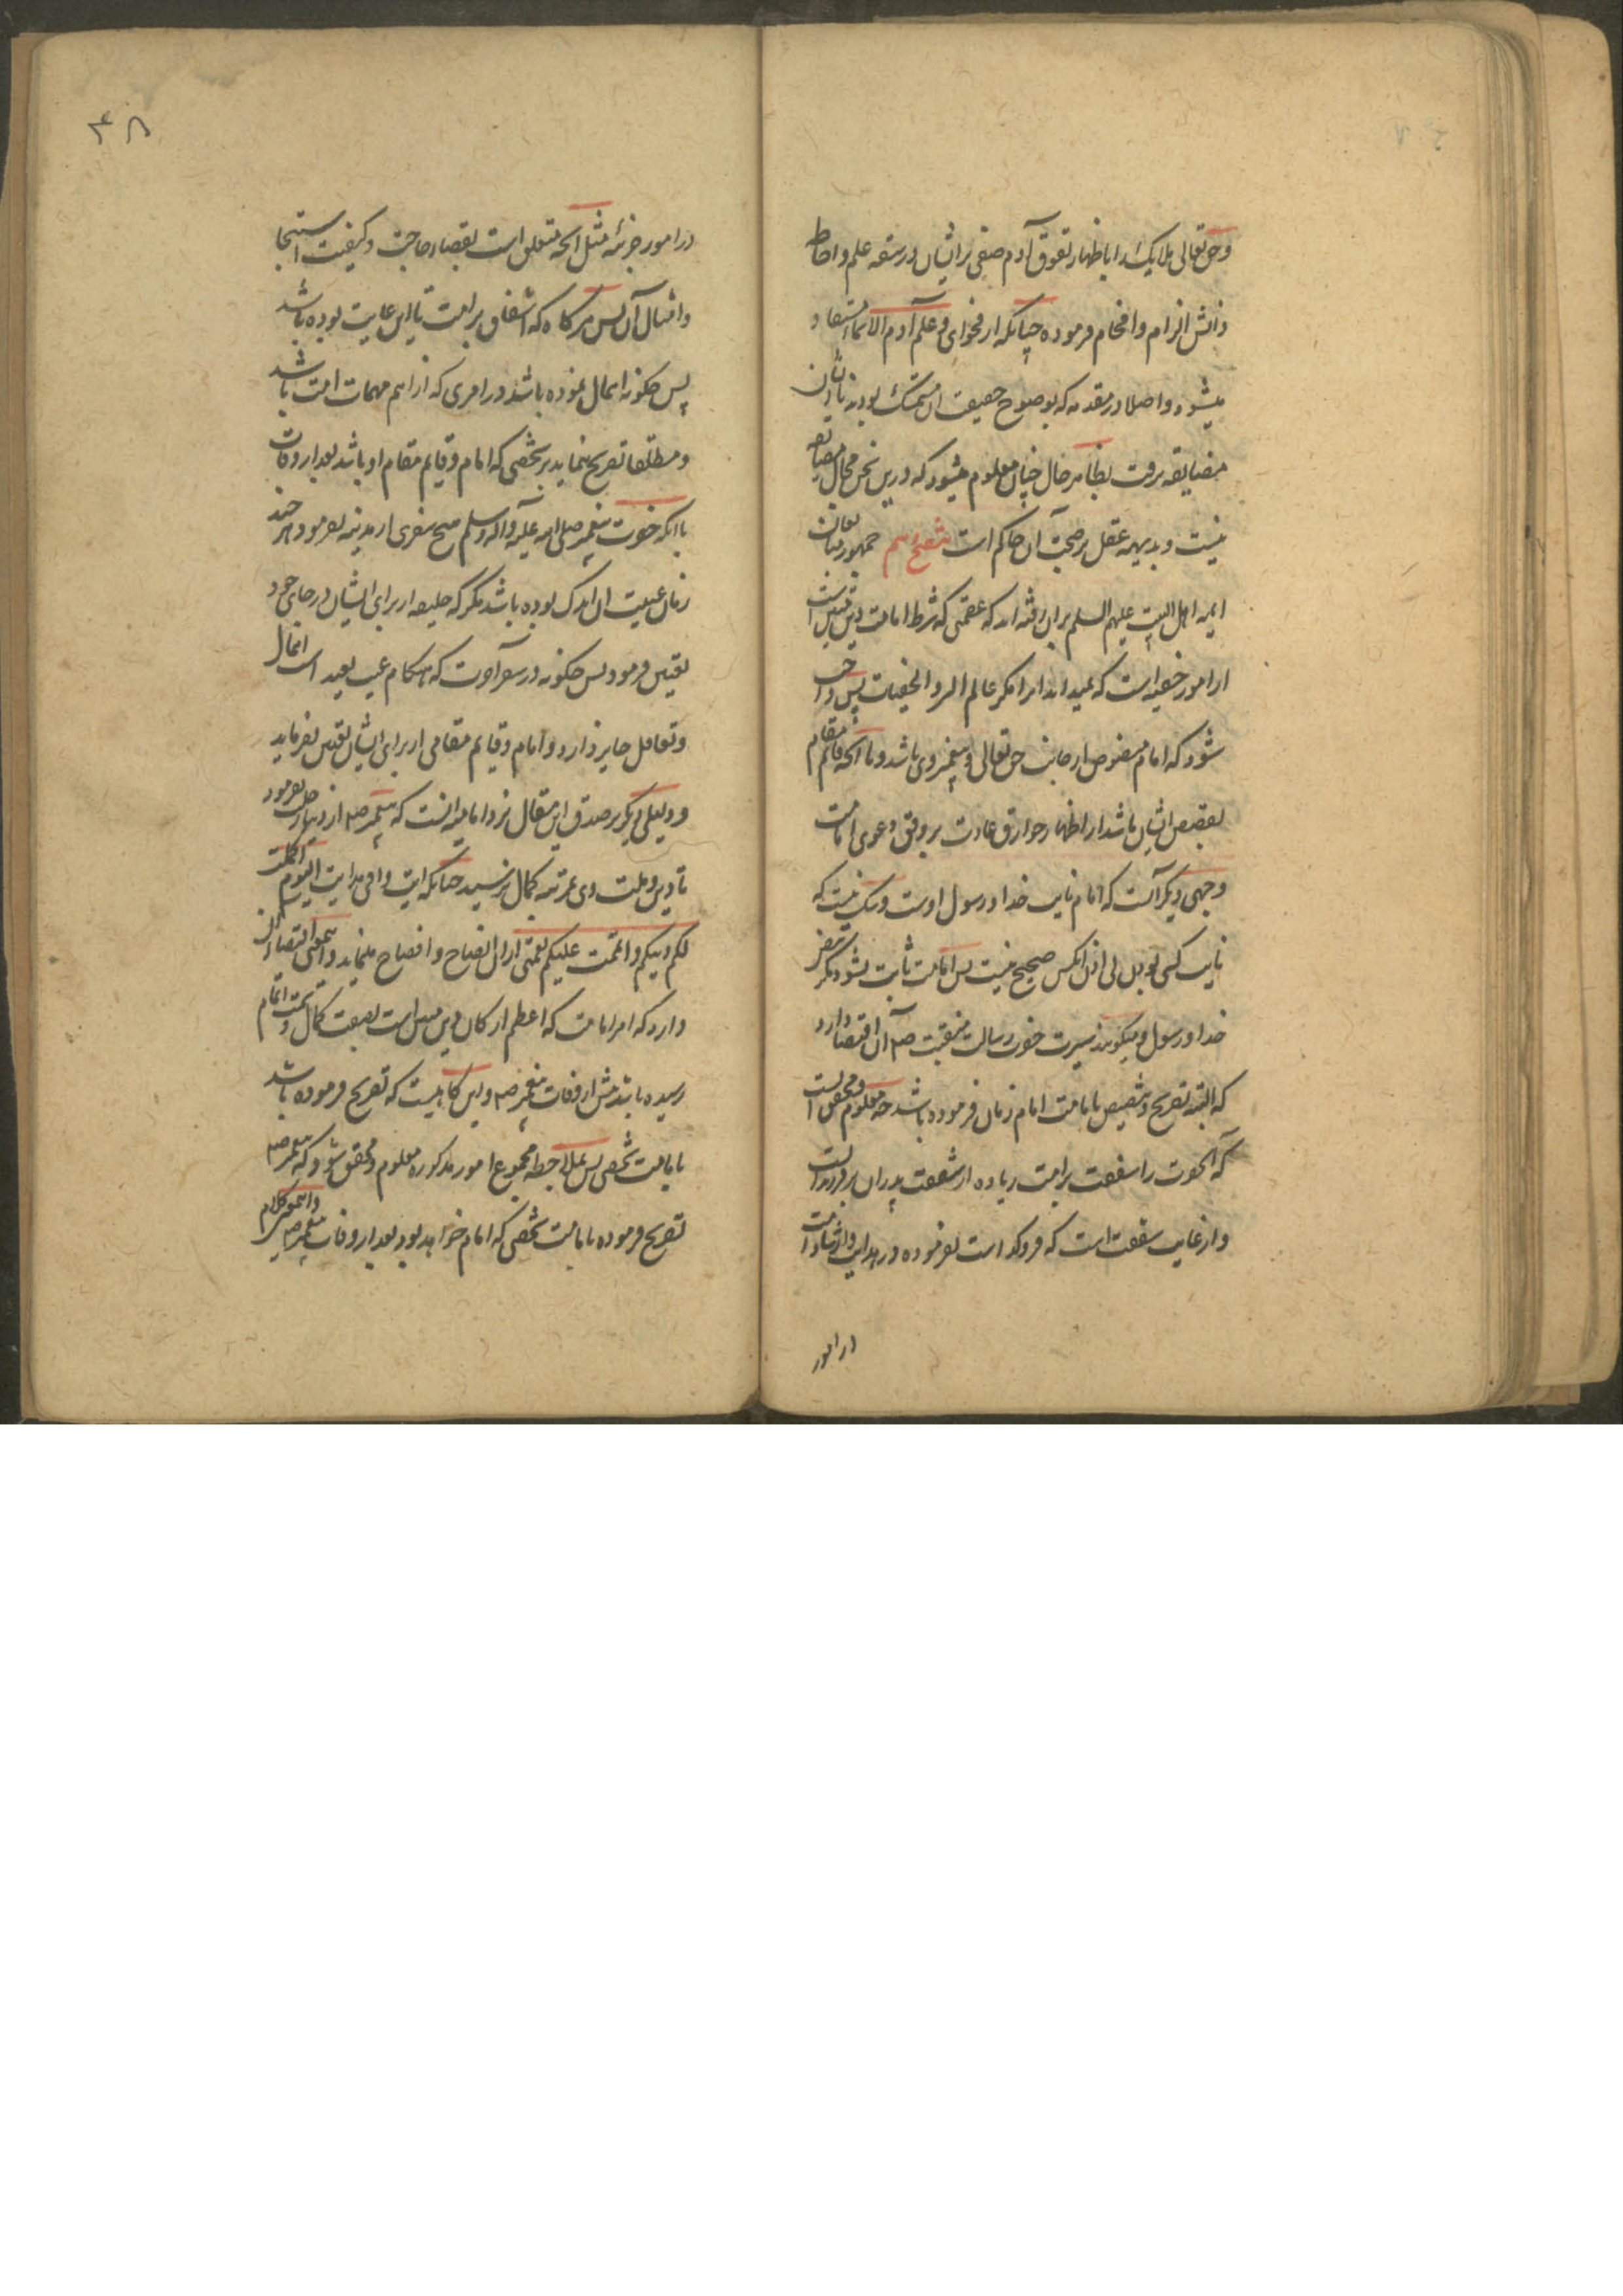 و حق تعالی ملایکه را باظهار تفوق آدم صفی بر ایشان در رتبه علم و احاطه
دانش الزام و افحام فرموده چنانکه از فحوای و علم آدم الاسماء مستفاد
میشود و اصلا در مقدمه که بوضوح حقیقت آن متمسک بودند با ایشان
مضایقه نرفت بظاهر حال چنان معلوم میشود که درین سخن مجال مضایقه
نیست و بدیهه عقل بر صحت آن حاکم است تنقیح نهم جمهور متابعان
ایمه اهل البیت علیهم السلم بران رفته اند که عصمتی که شرط امامت و تعیین است
از امور خفیه است که نمیداند انرا مگر عالم السر و الخفیات پس واجب
شود که امام منصوص از جانب حق تعالی و پیغمبر وی باشد و یا آنچه قایم مقام
تنصیص ایشان باشد از اظهار خوارق عادت بر وفق دعوی امامت
وجهی دیگر آنست که امام نایب خدا و رسول اوست و شک نیست که
نایب کسی بودن بی اذن آنکس صحیح نیست پس امامت ثابت نشود مگر بنص
خدا و رسول و میگویند سیرت حضرت رسالت منقبت صلم آن اقتضا دارد
که البته تصریح و تنصیص بامامت امام زمان فرموده باشد چه معلوم و محقق است
که آنحضرت را شفقت بر امت زیاده از شفقت پدران بر فرزندانست
و از غایت شفقت است که فروگذاشت نفرموده در هدایت و ارشاد امت
در امور
٣٨
در امور جزئیه مثل آنچه متعلق است بقضاء حاجت و کیفیت استنجا
و امثال آن پس هرگاه که اشفاق بر امت تا این غایت بوده باشد
پس چگونه اهمال نموده باشد در امری که از اهم مهمات امت باشد
و مطلقا تصریح ننماید بر شخصی که امام و قایم مقام او باشد بعد از وفات
با آنکه حضرت پیغمبر صلی الله علیه و آله و سلم هیچ سفری از مدینه نفرمود هر چند
زمان غیبت اندک بوده باشد مگر که خلیفه از برای ایشان در جای خود
تعیین فرمود پس چگونه در سفر آخرت که هنگام غیبت بعید است اهمال
و تغافل جایز دارد و امام و قایم مقامی از برای ایشان تعیین نفرماید
و دلیلی دیگر بر صدق این مقال نزد امامیه آنست که پیغمبر صلم از دنیا رحلت نفرمود
تا دین و ملت وی بمرتبه کمال نرسید چنانکه آیت وافی هدایت الیوم اکملت
لکم دینکم و اتممت علیکم نعمتی از آن ایضاح و افصاح مینماید و این معنی اقتضاء آن
دارد که امر امامت که اعظم ارکان دین مبین است بصفت کمال و سمت اتمام
رسیده باشد پیش از وفات پیغمبر صلم و این گاهیست که تصریح فرموده باشد
بامامت شخصی پس بملاحظه مجموع امور مذکوره معلوم و محقق شود که پیغمبر صلم
تصریح فرموده بامامت شخصی که امام خواهد بود بعد از وفات پیغمبر صلم